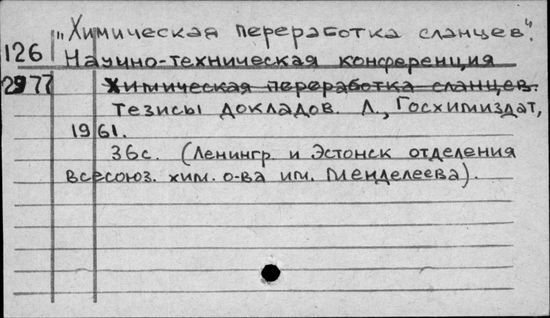 „Химическая переработка сланцев".
126 Научно-техническая конференция
2977 Химическая переработка сланцев.
Тезисы докладов. Л., Госхимиздат,
1961.
36с. (Ленингр. и Эстонск отделения
всесоюз. хим. о-ва им. Менделеева).